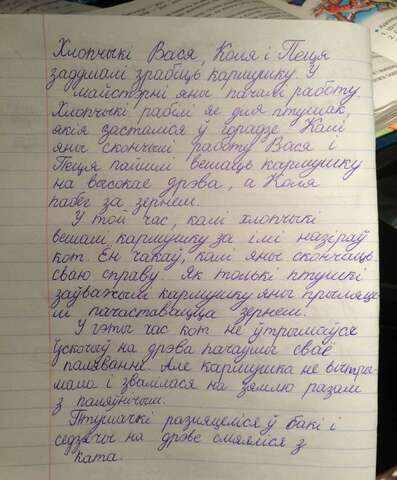 Хлопчыкі Вася, Коля і Пеця
задумалі зрабіць кармушку. У
майстэрні яны пачалі работу.
Хлопчыкі рабілі яе для птушак,
якія засталіся ў горадзе. Калі
яны скончылі работу Вася і
Пеця пайшлі вешаць кармушку
на высокае дрэва, а Коля
пабег за зернем.
У той час, калі хлопчыкі
вешалі кармушку за імі назіраў
кот. Ён чакаў, калі яны скончыць
сваю справу. Як толькі птушкі
заўважылі кармушку яны прыляце-
лі пачаставацца зернем.
У гэты час кот не ўтрымаўся
ўскочыў на дрэва пачаўшы сваё
паляванне. Але кармушка не вытры-
мала і звалілася на зямлю разам
з паляўнічым.
Птушачкі разляцеліся ў бакі і
седзячы на дрэве смяяліся з
ката.